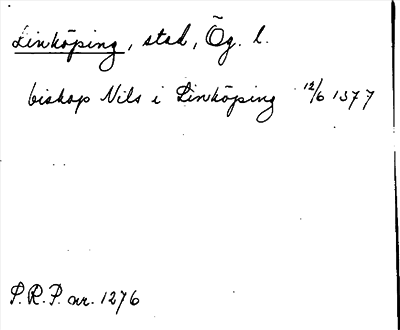 Linköping, stad, Ög. l.
biskop Nils i Linköping 12/6 1377
S.R.P. nr. 1276